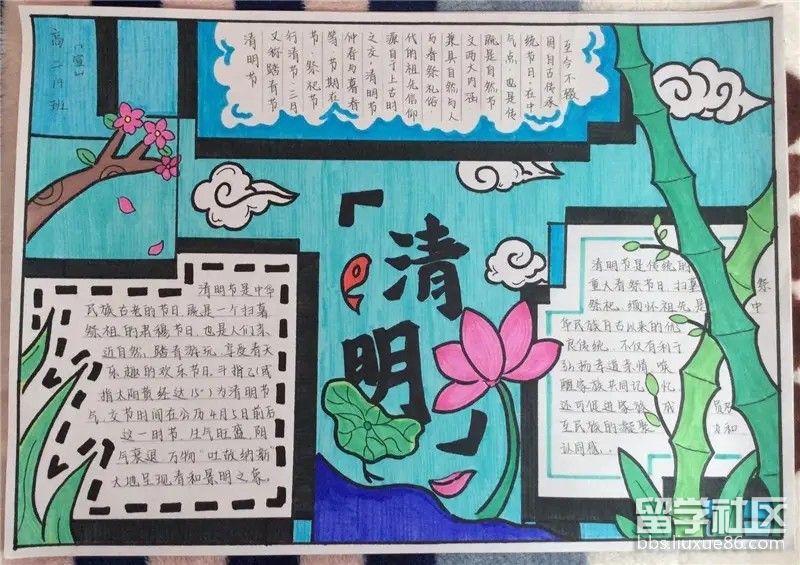 清明节
又称踏青节
行清节·三月
节·祭祀节
等,节期在
仲春与暮春
之交,清明节
源自了上古时
代的祖先信仰
与春祭礼俗,
兼具自然与人
文两大内涵
既是自然节
气点,也是传
统节日,在中
国自古传承
至今不辍
「清明」
清明节是中华
民族古老的节日,既是一个扫墓
祭祖的肃穆节日,也是人们亲
近自然,踏青游玩,享受春天
乐趣的欢乐节日,斗指乙(或
指太阳黄经达15°)为清明节
气,交节时间在公历4月5日前后
这一时节,生气旺盛,阴
气衰退,万物"吐故纳新"
大地呈现春和景明之象。
清明节是传统的
重大春祭节日,扫墓祭
祭祀、缅怀祖先,是中
华民族自古以来的优
良传统,不仅有利于
弘扬孝道亲情、唤
醒家族共同记忆
还可促进家族成员
互民族的凝聚力和
认同感。
留学社区
bbs.liuxue86.com